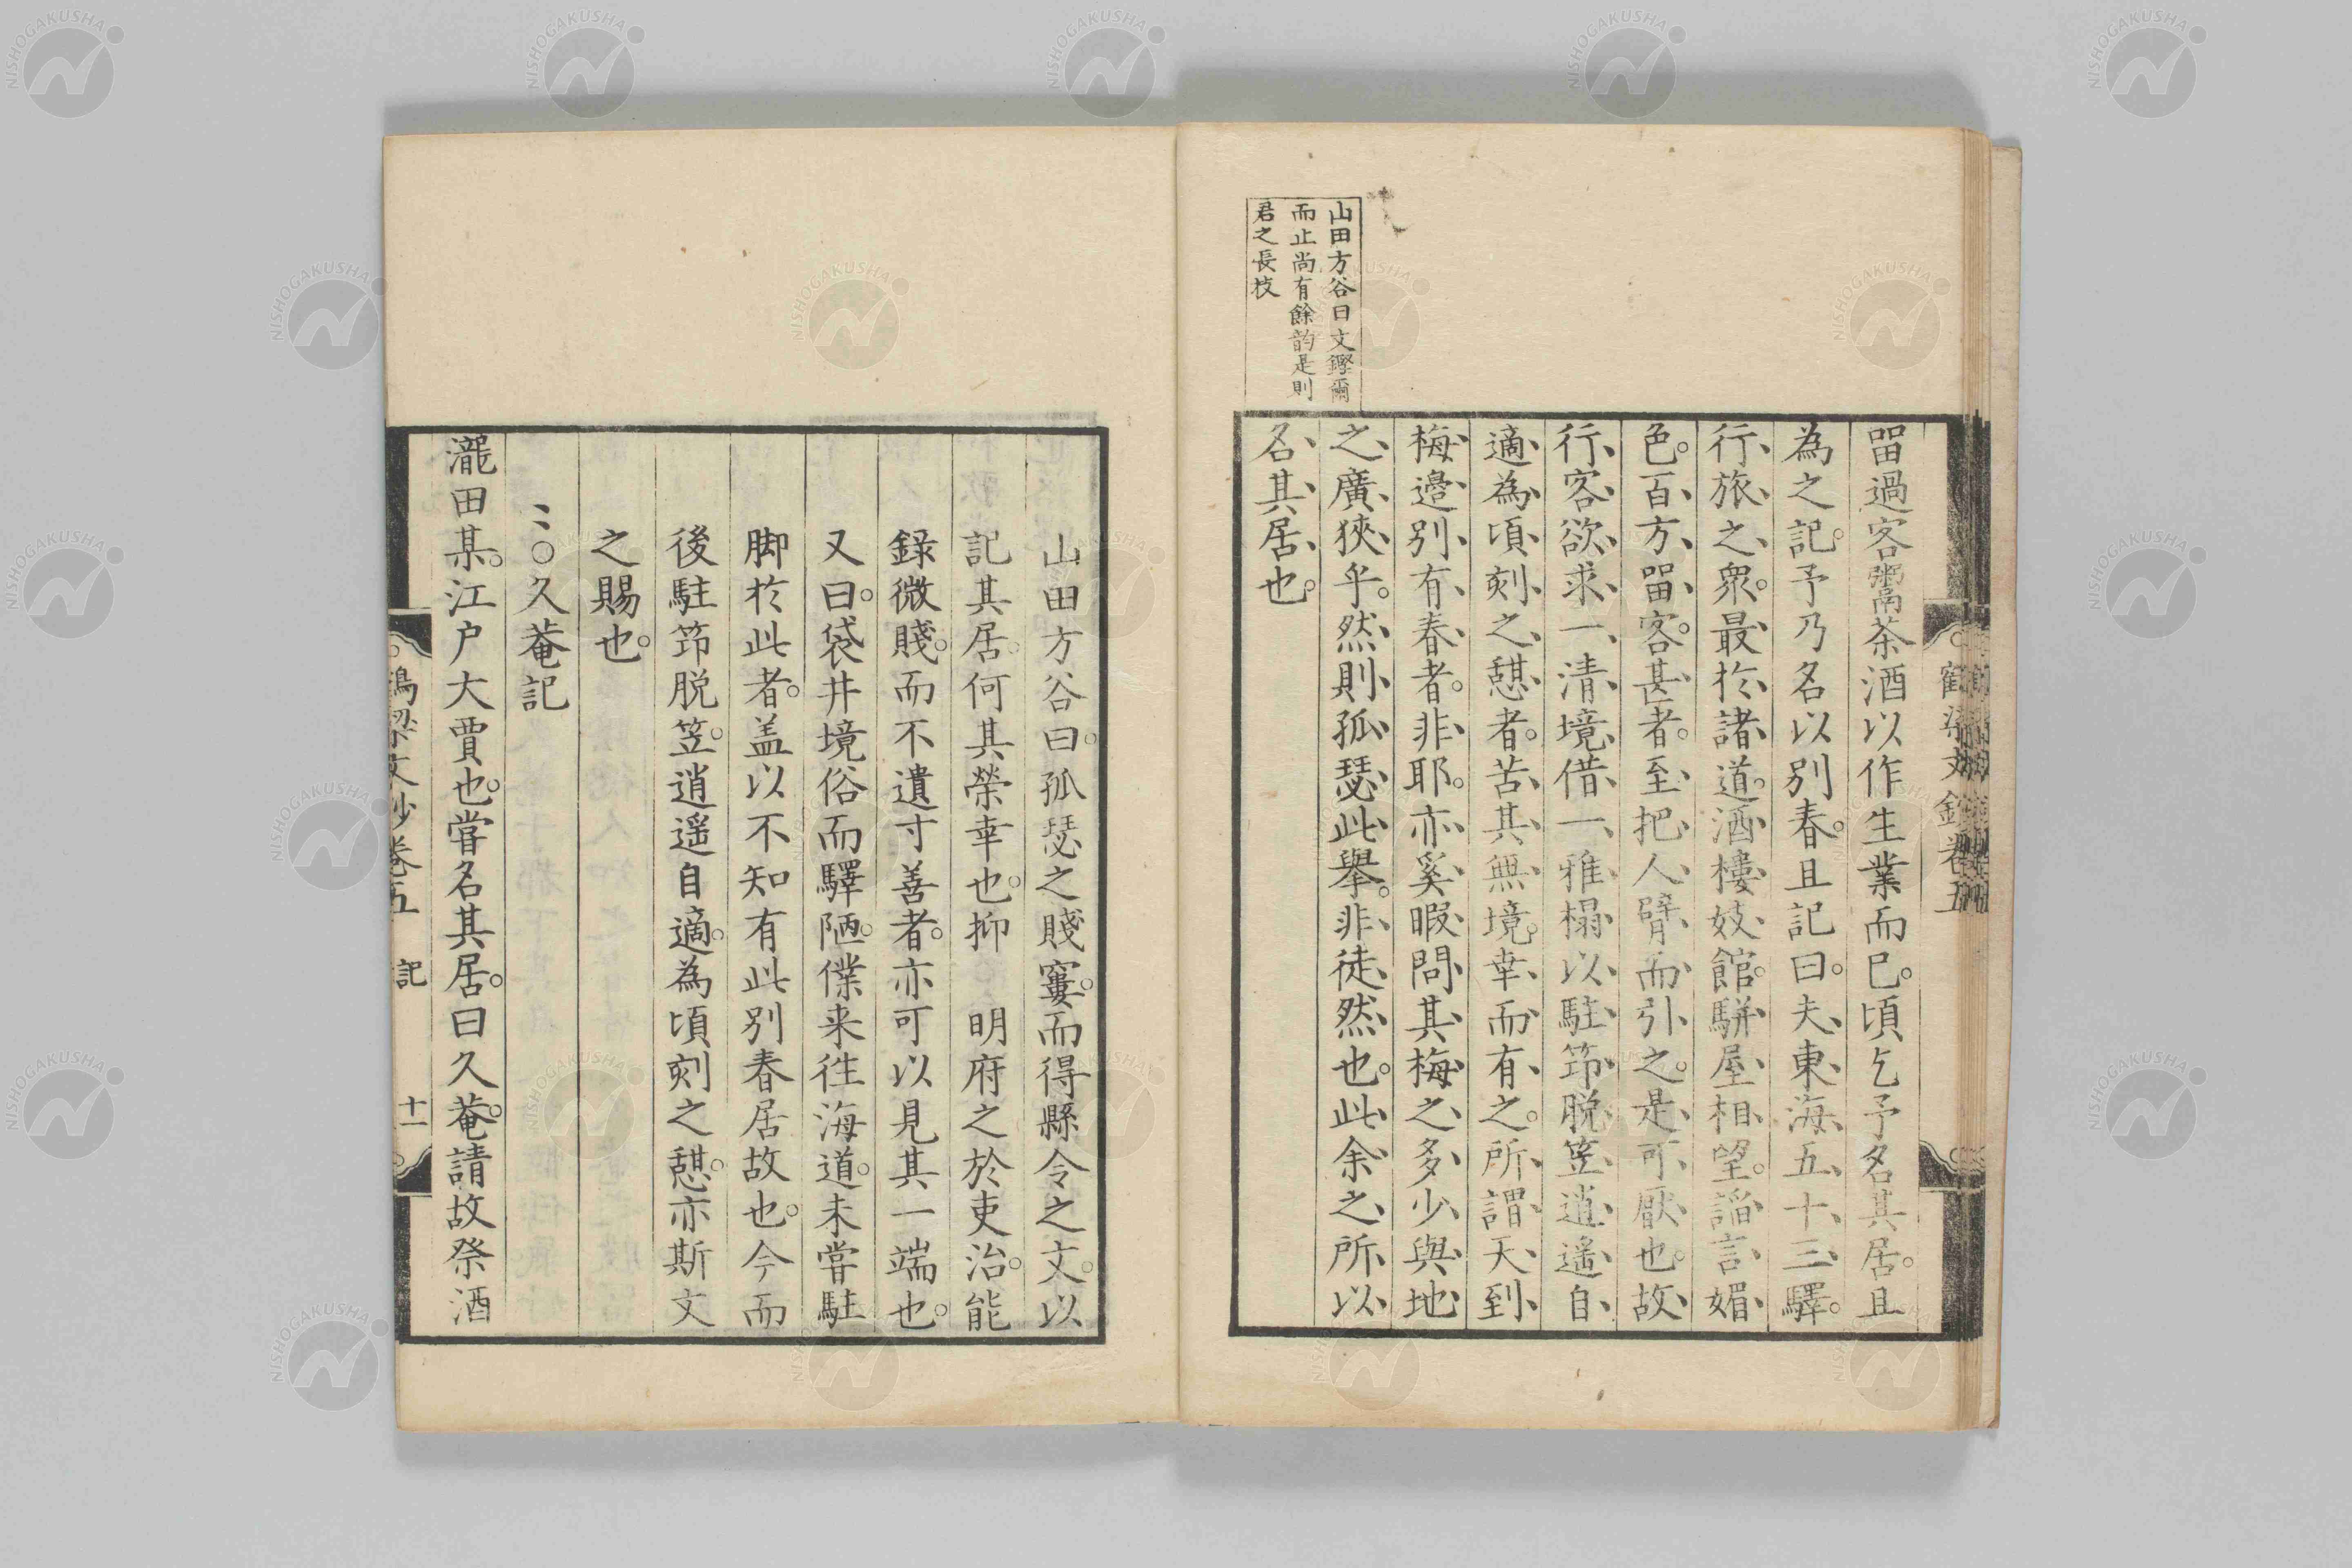 山田方谷曰文鏗爾
而止尚有餘韵是則
君之長技
畱過客鬻茶酒以作生業而已。頃乞予名其居。且
為之記。予乃名以別春。且記曰。夫、東、海、五、十、三、驛。
行、旅、之、衆。最、於、諸、道。酒、樓、妓、館。駢、屋、相、望。謟、言、媚、
色。百、方、畱、客。甚、者。至、把、人、臂、而、引、之。是、可、厭、也。故、
行、客、欲、求、一、清、境、借、一、雅、榻、以、駐、筇、脫、笠、逍、遙、自、
適、為、頃、刻、之、憇、者。苦、其、無、境。幸、而、有、之。所、謂、天、到、
梅、邉、別、有、春、者。非、耶。亦、奚、暇、問、其、梅、之、多、少、與、地、
之、廣、狹、乎。然、則、孤、瑟、此、舉。非、徒、然、也。此、余、之、所、以、
名、其、居、也。
山田方谷曰。孤瑟之賤寠。而得縣令之文。以
記其居。何其榮幸也。抑　明府之於吏治。能
錄微賤。而不遺寸善者。亦可以見其一端也。
又曰。袋井境俗而驛陋。僕来徃海道。未嘗駐
脚於此者。盖以不知有此別春居故也。今而
後駐筇脱笠。逍遥自適。為頃刻之憇。亦斯文
之賜也。
〻〇久菴記
瀧田某。江户大賈也。嘗名其居。曰久菴。請故祭酒
文鈔卷五　記　十一